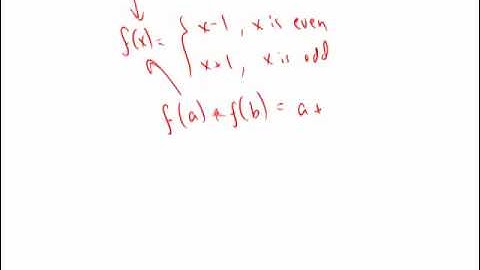 f(x) = { x-1 , x is even
x+1 , x is odd
f(a) + f(b) = a +